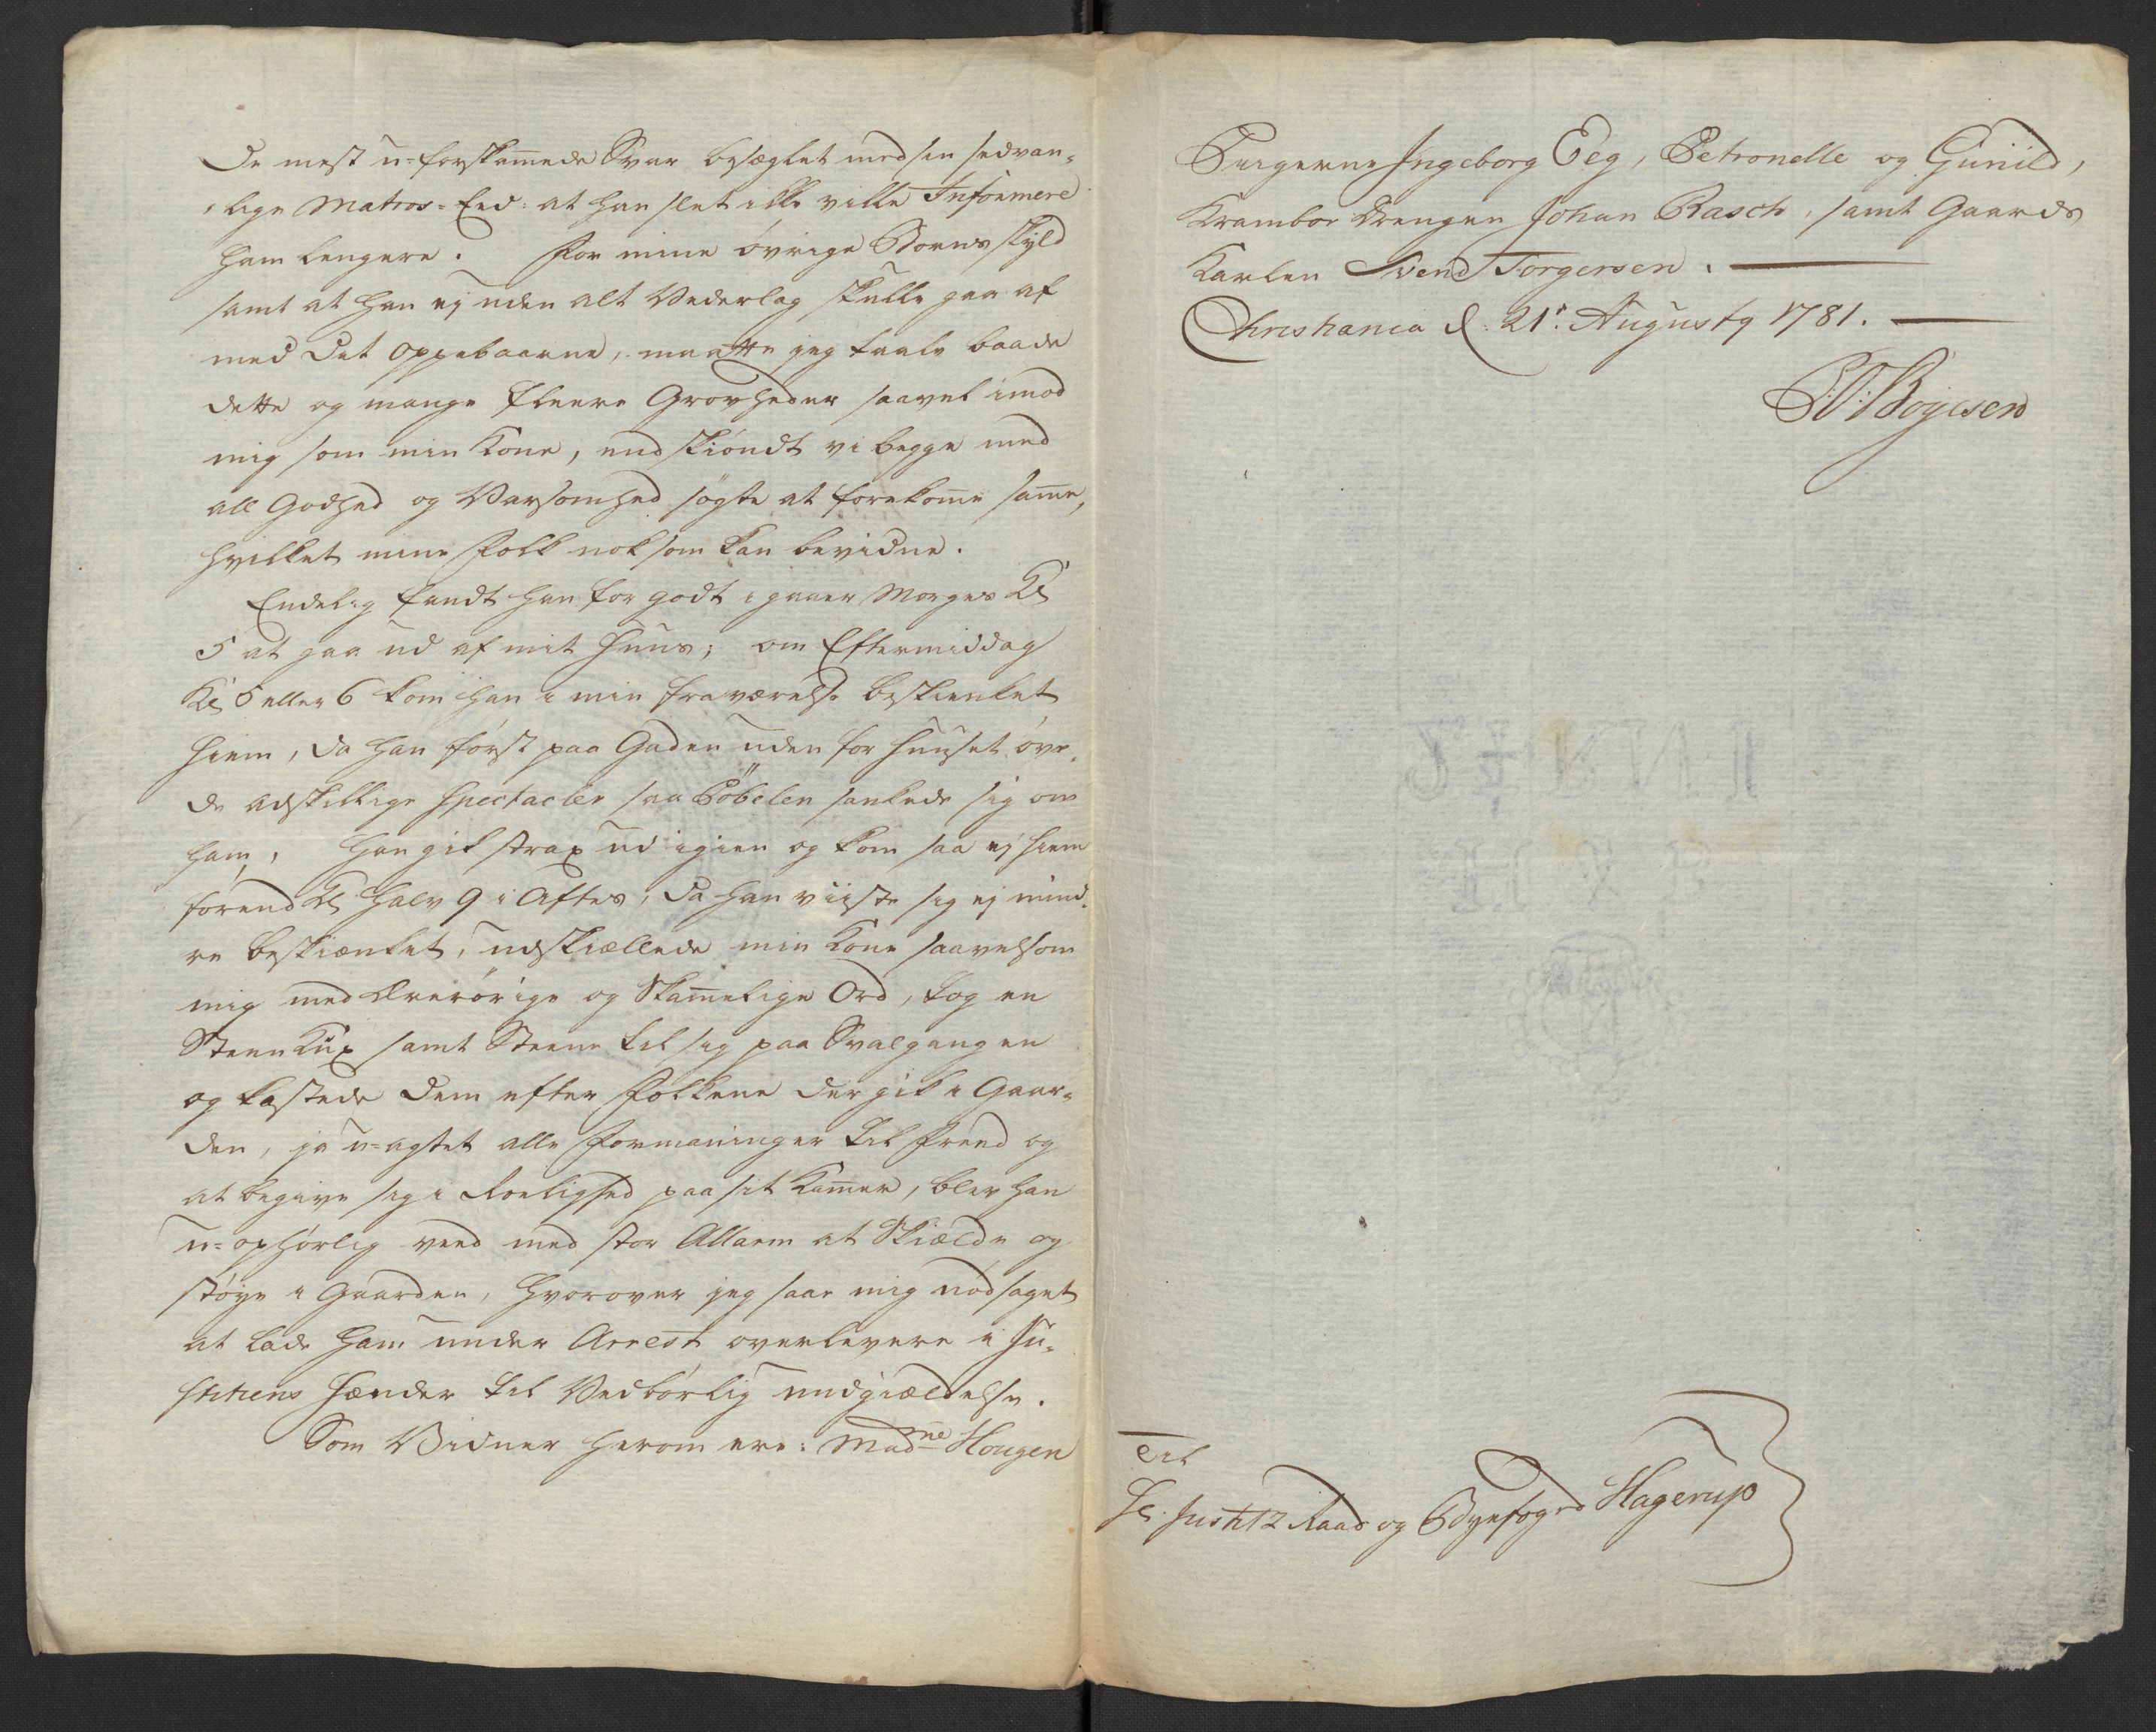 De mest u-forskam̄ede Svar besæglet med sin sædvan-
-lige Matros-Eed: at han slet ikke ville Informere
ham lengere. For mine övrige Borns skyld
samt at han ej uden alt Vederlag skulle gaa af
med det oppebaarne, maatte jeg taale baade
dette og mange fleere Grovheder saavel imod
mig som min Kone, endskiöndt vi begge med
all Godhed og Varsomhed sögte at forekom̄e sam̄e,
hvilket mine Folk noksom kan bevidne.
Endelig fandt han for godt i gaaer Morges Kl
5 at gaa ud af mit Huus; om Eftermiddag
Kl 5 eller 6 kom han i min fraværelse beskienket
hiem, da han först paa Gaden uden for Huuset öve-
de adskillige Spectacler saa Pöbelen sankede sig om
ham, Han gik strax ud igien og kom saa ej hiem
förend Kl halv 9 i Aftes, da han viiste sig ej mind-
re beskiænket, udskiællede min Kone saavelsom
mig med ærerörige og Skam̄elige Ord, tog en
Steen Kux samt Steene til sig paa Svalgangen
og kastede dem efter Folkene der gik i Gaar-
den, ja u-agtet alle Formaninger til Freed og
at begive sig i Roelighed paa sit Kam̄er, blev han
u-ophörlig veed med stor Allarm at Skiælde og
stöye i Gaarden, hvorover jeg saae mig nödsaget
at lade ham under Arrest overlevere i Ju-
stitiens Hænder til Vedbörlig undgiældelse.
Som Vidner herom ere: Mad<sup>ne</sup> Hougen
Pigerne Ingeborg Eeg, Petronelle og Gunild,
Krambor Drengen Johan Rasch, samt Gaards
Karlen Svend Torgersen.
Christiania d. 21<sup>de</sup> Augusty 1781.
Boyesen
Til
Hr. Justitz Raad og Byefoged Hagerup